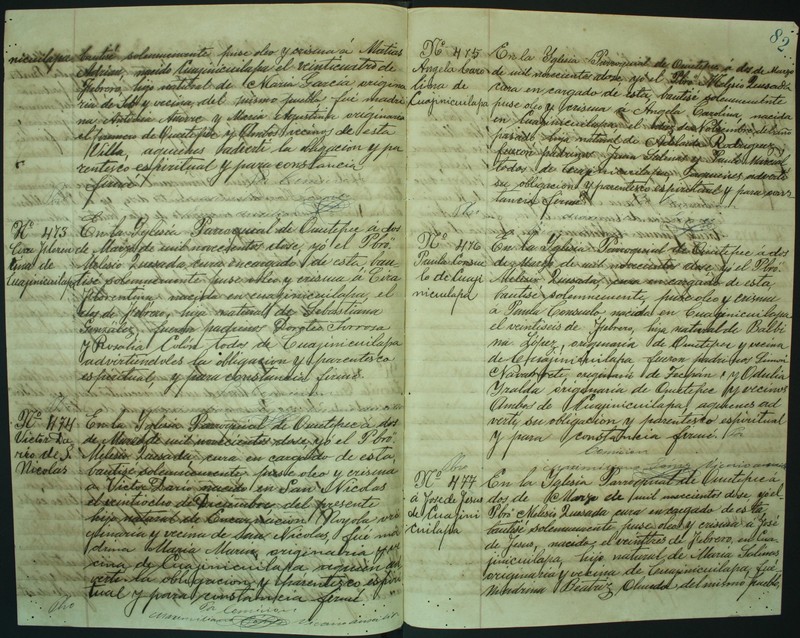 nicuilapa bautisé solemnemente puse oleo y crisma á Matias
Adrian, nacido Cuajinicuilapa el veinticuatro de
Febrero, hijo natural de Maria Garcia, origina
ria de y vecina del mismo pueblo, fué madri
na Antonia y Maria Agustina originario
el primero de Ometepec y vecinos de esta
Villa, aquienes advertí la obligacion y pa
rentesco espiritual y para constancia
firmé
Nº 473
Cira floren
tina de
Cuajinicuilapa
En la Yglesia Parroquial de Ometepec á dos
de Marzo de mil novecientos dose, yo el Pbro
Melesio Quesada, cura encargado de esta, bau
tisé solemnemente puse oleo y crisma á Cira
Florentina nacida en cuajinicuilapa, el
dos de febrero, hija natural de Sebastiana
Gonzalez, fueron padrinos Doroteo
y Rosalia Colón todos de Cuajinicuilapa
advirtiendoles la obligacion y parentesco
espiritual, y para constancia firmé.
Nº 474
Victor Da
rio de S.
Nicolas
En la Yglesia Parroquial de Ometepec á dos
de Marzo de mil novecientos dose, yo el Pbro
Melesio Quesada, cura en cargado de esta,
bautisé solemnemente puse oleo y crisma
á Victor Dario nacido en San Nicolas
el veintiocho de Diciembre del presente
hijo natural de Encarnacion Noyola ori
ginaria y vecina de San Nicolas, fué ma
drina Maria originaria y ve
cina de Cuajinicuilapa aquien ad
vertí la obligacion y parentesco espiri
tual y para constancia firmé
82
Nº 475
Angela Caro
lina de
Cuajinicuilapa
En la Yglesia Parroquial de Ometepec á dos de Marzo
de mil novecientos dose, yo el Pbro Melesio Quesada
cura en cargado de esta, bautisé solemnemente
puse oleo y crisma á Angela Carolina, nacida
en Cuajinicuilapa, el de Noviembre del año
pasado hija natural de Adelaida Rodriguez,
fueron padrinos Juan Salinas y
todos de Cuajinicuilapa, aquienes advertí
su obligacion y parentesco espiritual y para cons
tancia firmé
Nº 476
Paula Consue
lo de Cuaji
nicuilapa
En la Yglesia Parroquial de Ometepec á dos
de Marzo de mil novecientos dose yo el Pbro
Melesio Quesada, cura en cargado de esta,
bautisé solemnemente, puse oleo y crisma
á Paula Consuelo nacida en Cuajinicuilapa
el veintiseis de Febrero, hija natural de Balbi
na Lopez, originaria de Ometepec y vecina
de Cuajinicuilapa fueron padrinos Simon
Navarrete, originario de y Odulia
Yzalda originaria de Ometepec y vecinos
Ambos de Cuajinicuilapa, aquienes ad
vertí su obligacion y parentesco espiritual
y para constancia firmé.
Nº 477
á Jose de Jesus
de Cuajini
cuilapa
En la Yglesia Parroquial de Ometepec á
dos de Marzo de mil novecientos dose, yo el
Pbro Melesio Quesada cura encargado de esta,
bautisé solemnemente puse oleo y crisma á José
de Jesus, nacido, el veintitres de Febrero, en Cua
jinicuilapa, hijo natural de Maria Salinas
originaria y vecina de Cuajinicuilapa, fué
madrina Beatriz Olmedo, del mismo pueblo,